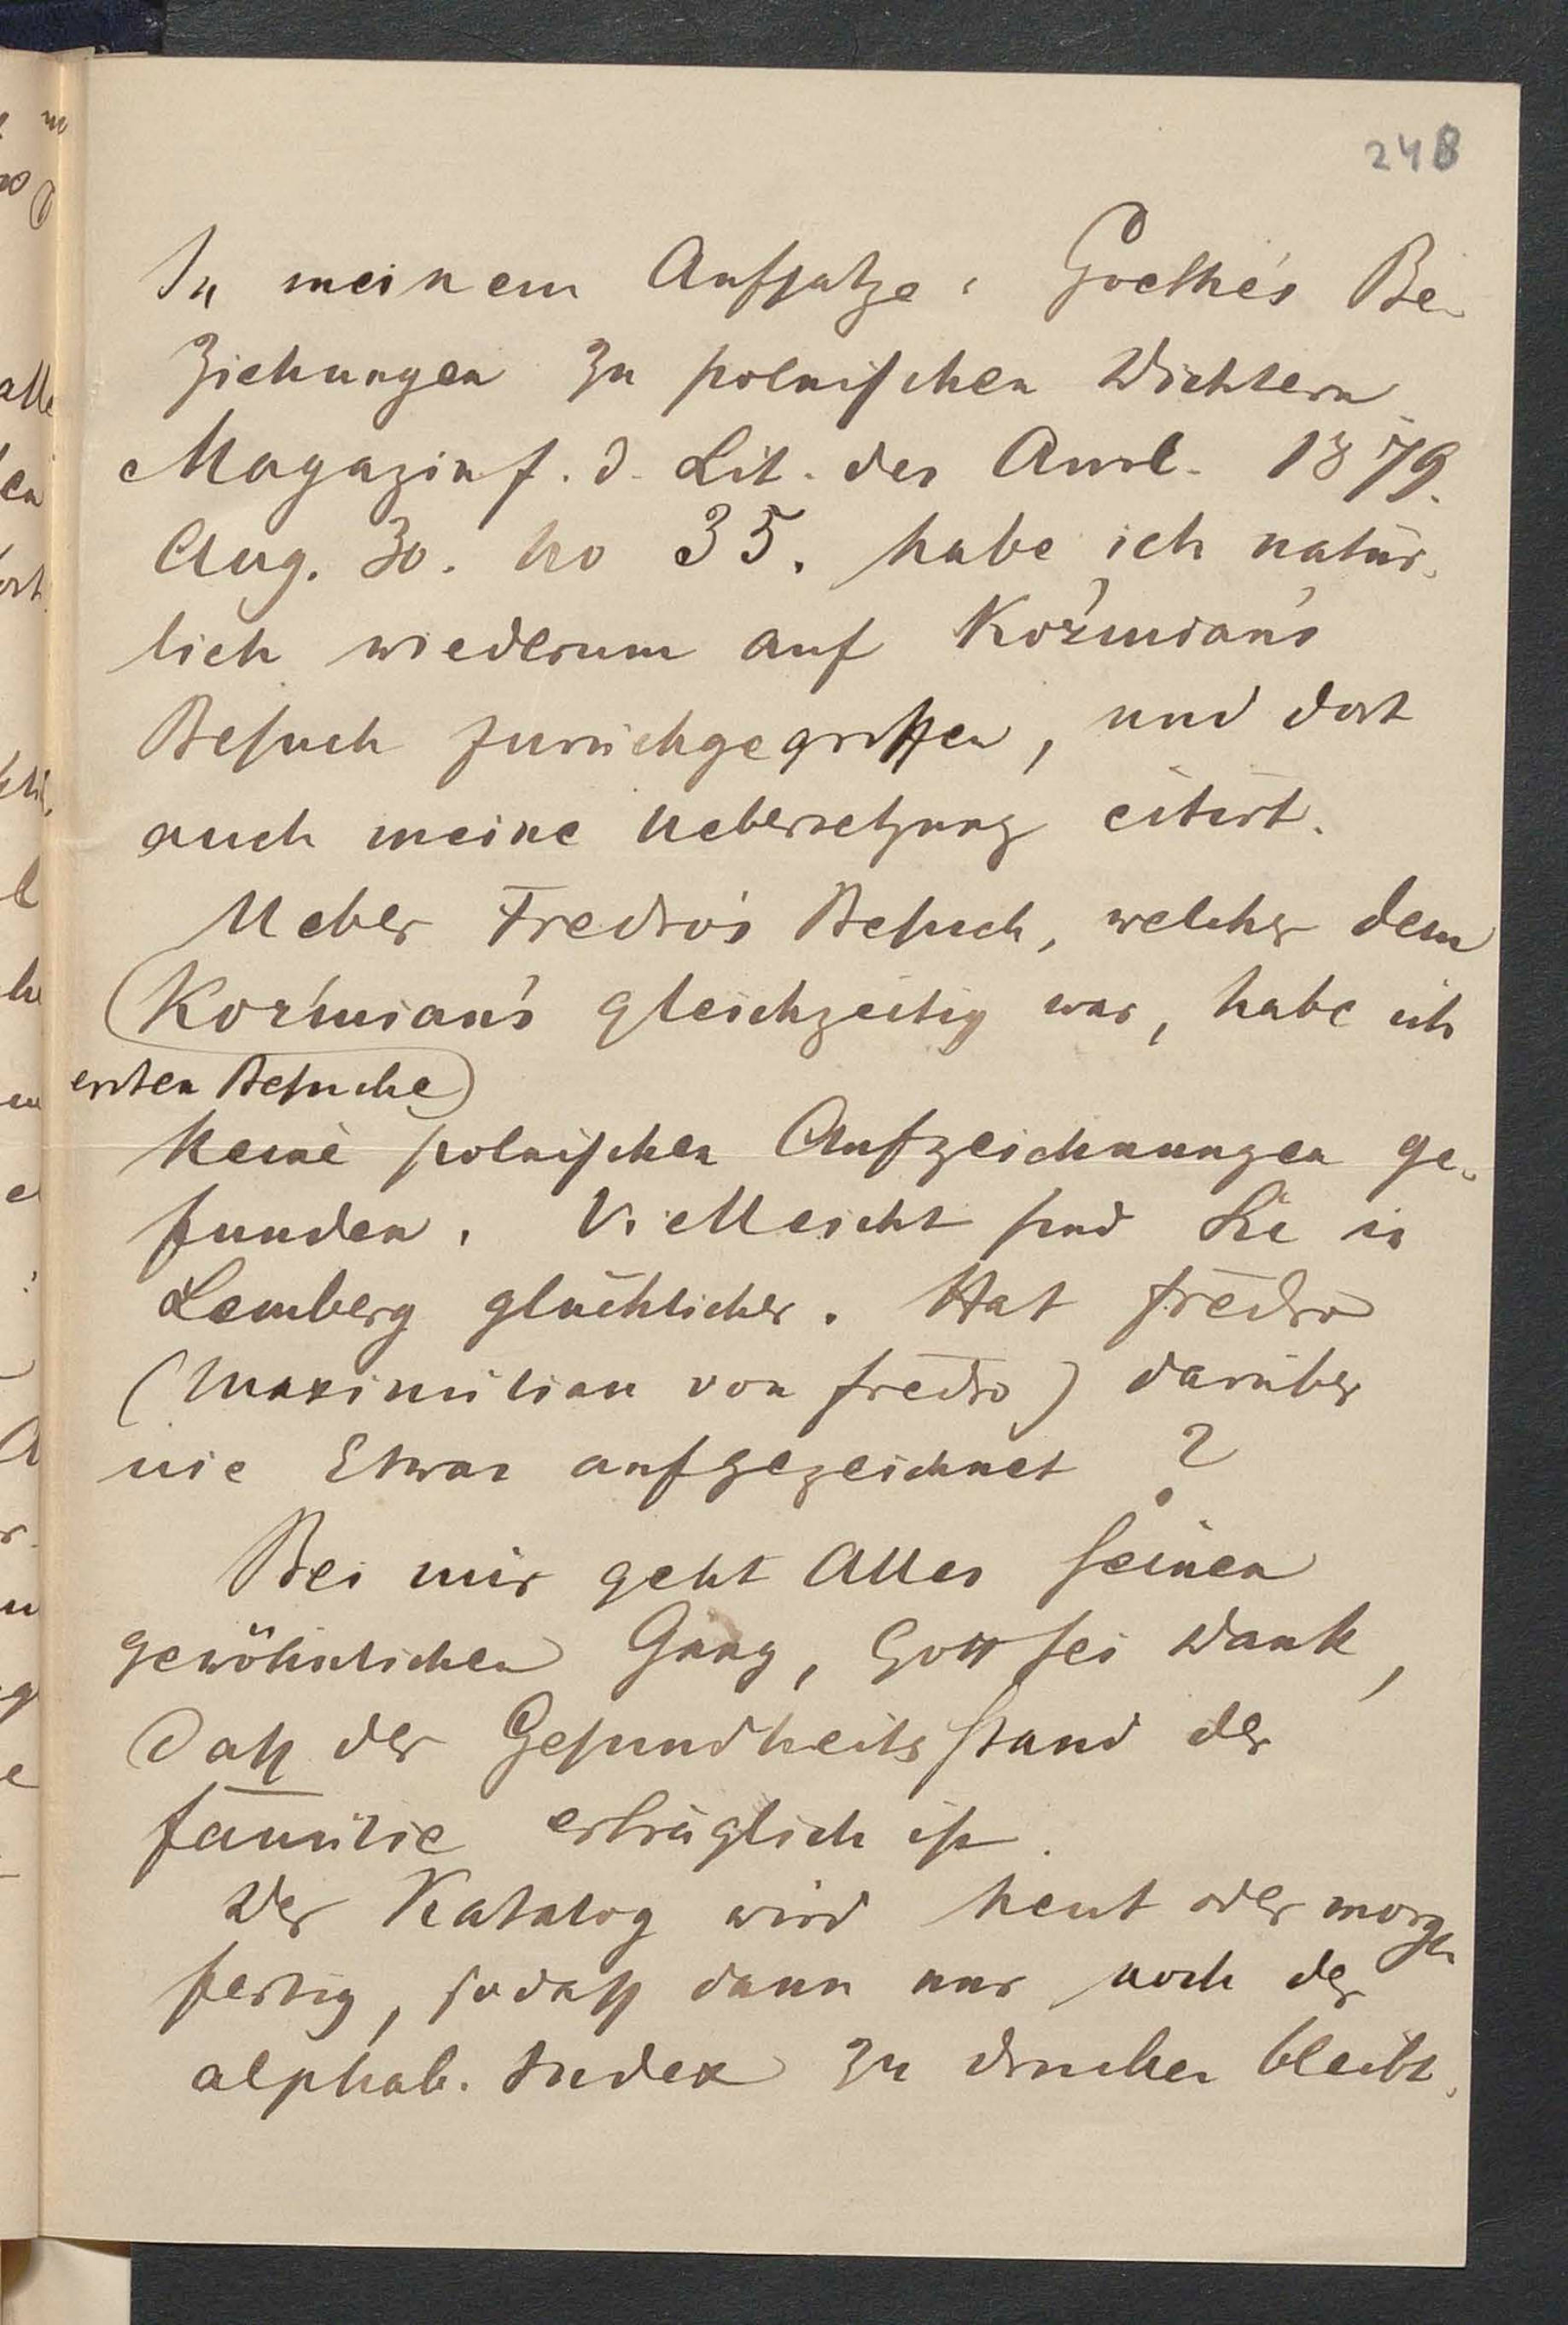 248
In meinem Aufsatze: Goethe's Be-
ziehungen zu polnischen Dichtern
Magazin f. d. Lit. des Ausl. 1879.
Aug. 30. No 35. habe ich natür-
lich wiederum auf Koźmian's
Besuch zurückgegriffen, und dort
auch meine Uebersetzung citirt.
Ueber Fredro's Besuch, welcher dem
Koźmian's gleichzeitig war, habe ich
ersten Besuche
keine polnischen Aufzeichnungen ge-
funden. Vielleicht sind Sie in
Lemberg glücklicher. Hat Fredro
(Maximilian von Fredro) darüber
nie Etwas aufgezeichnet?
Bei mir geht Alles seinen
gewöhnlichen Gang, Gott sei Dank,
daß der Gesundheitsstand der
Familie erträglich ist.
Der Katalog wird heut oder morgen
fertig, sodaß dann nur noch der
alphab. Index zu drucken bleibt.